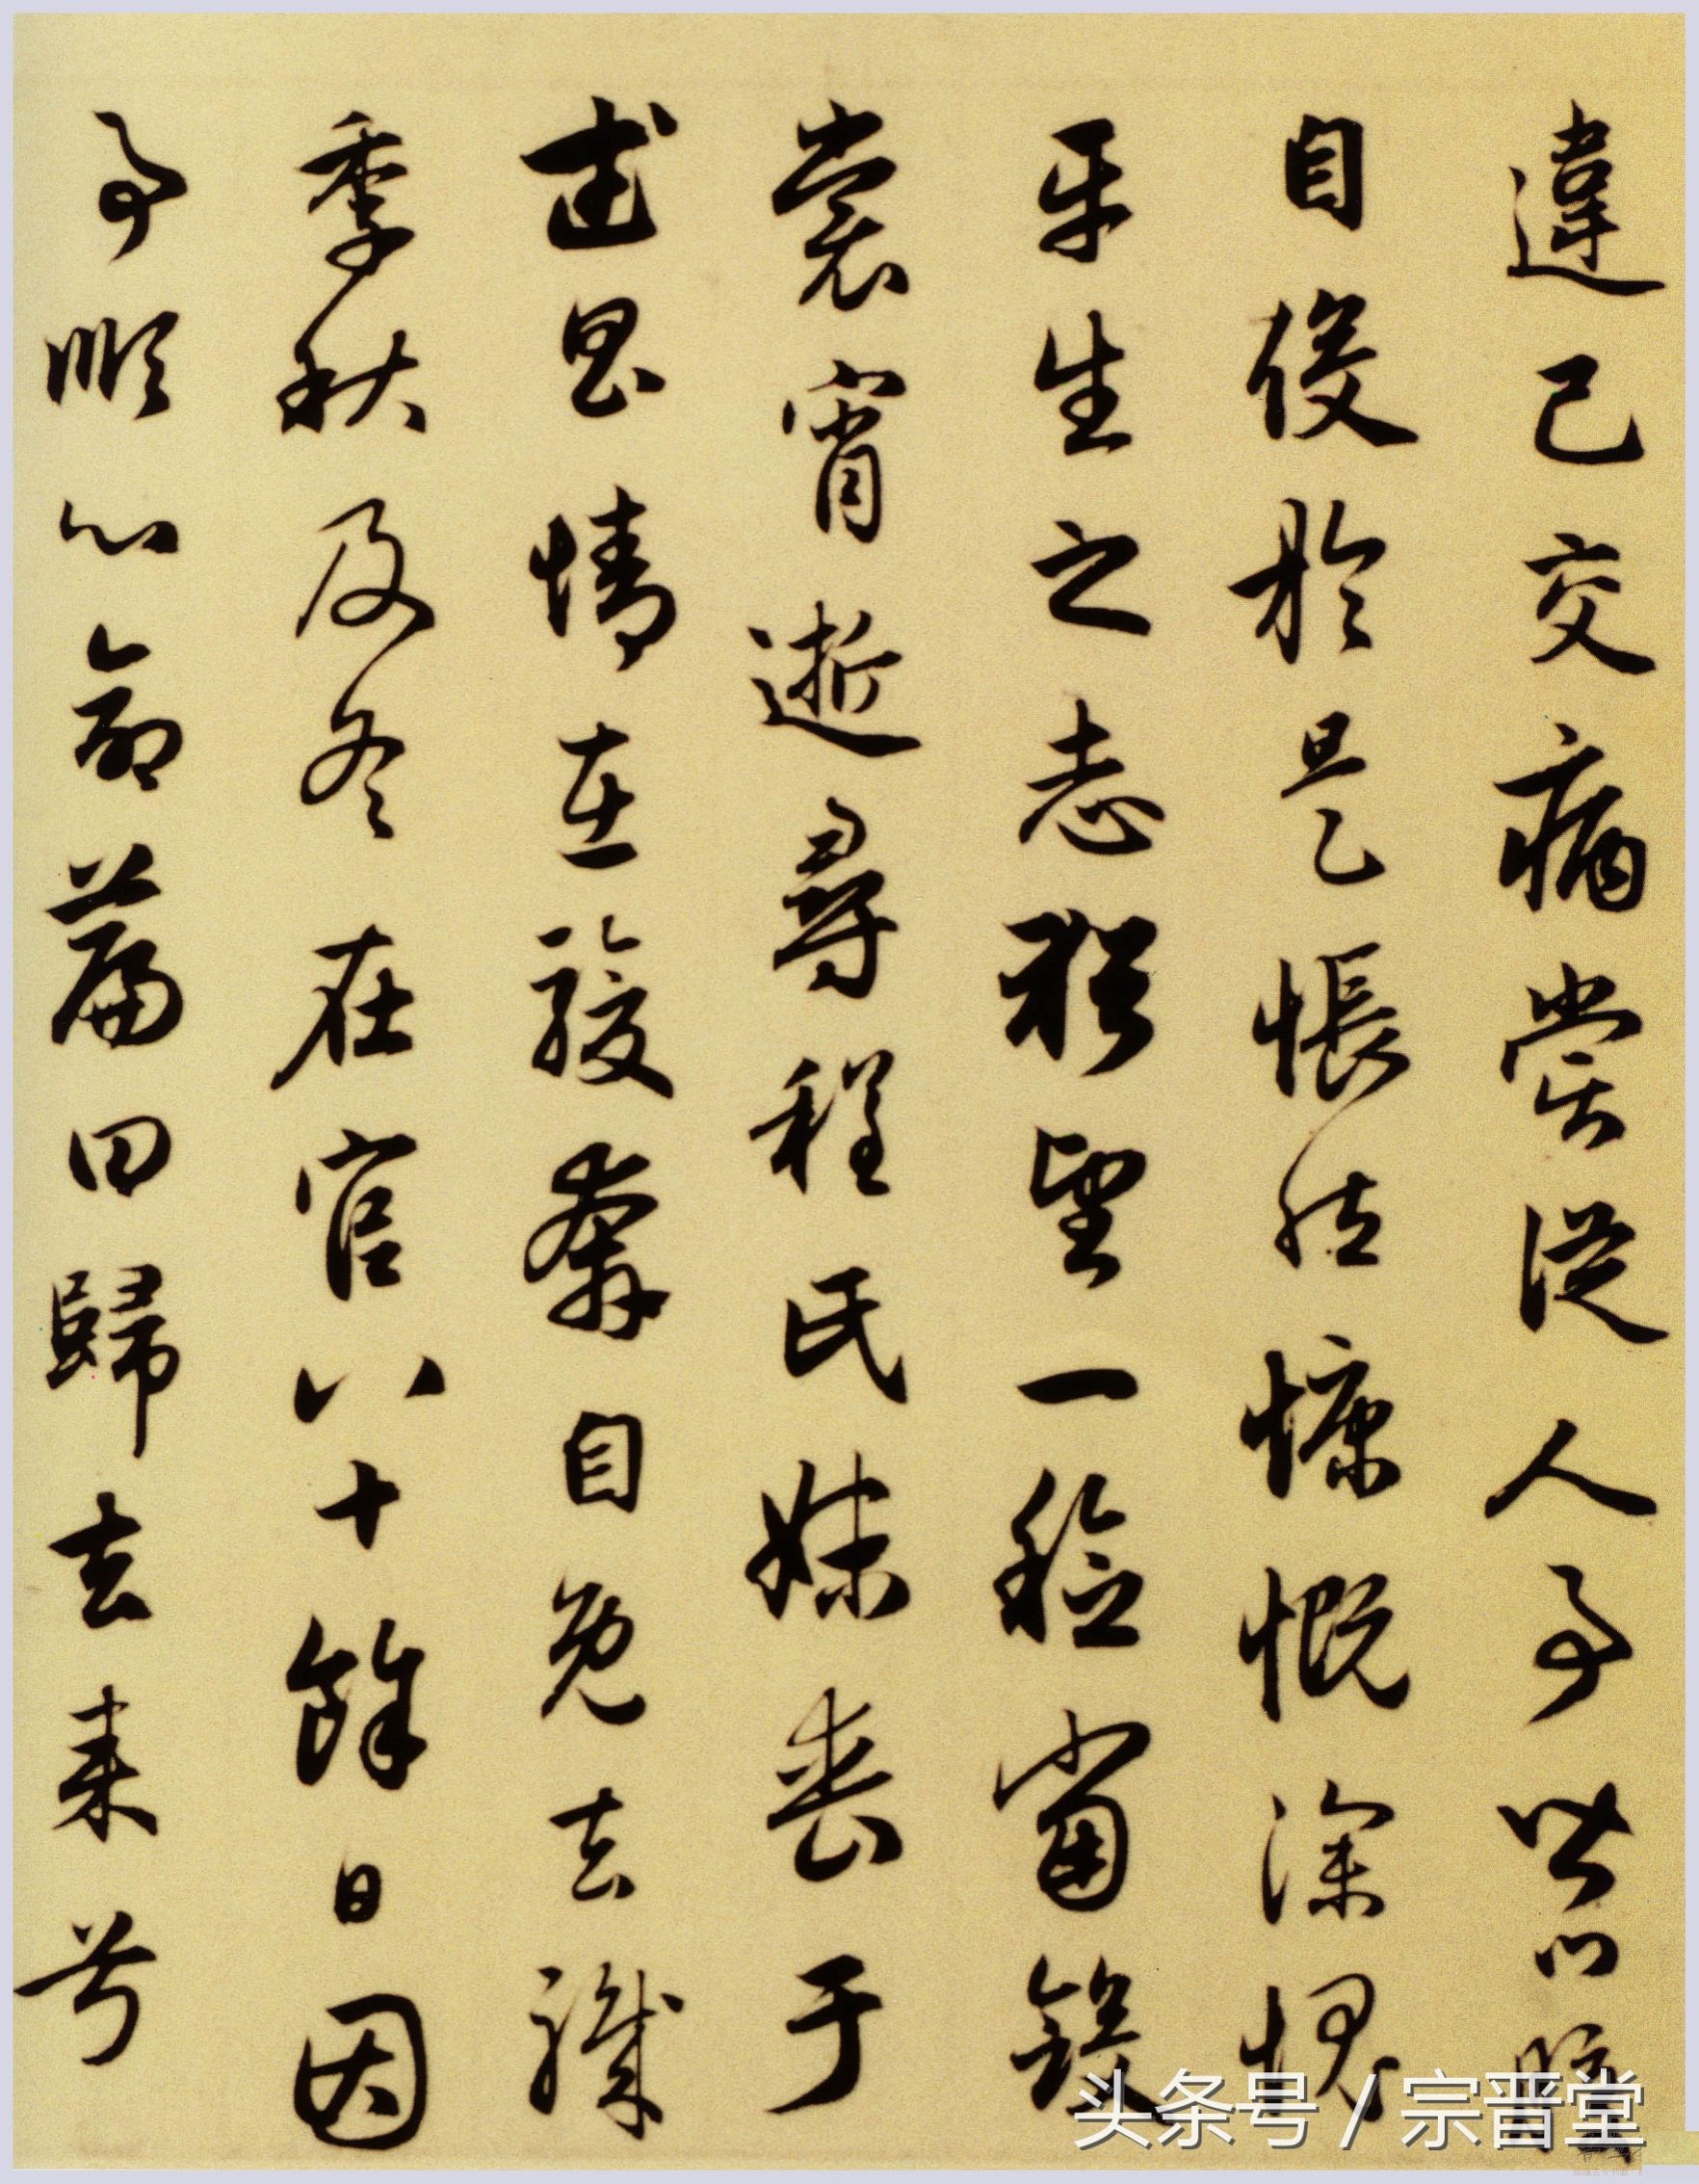 違己交病嘗從人事皆口腹
自役於是悵然慷慨深愧
平生之志猶望一稔當斂
裳宵逝尋程氏妹喪于
武昌情在駿奔自免去職
季秋及冬在官八十餘日因
事順心命萹曰歸去来兮
头条号 / 宗晋堂